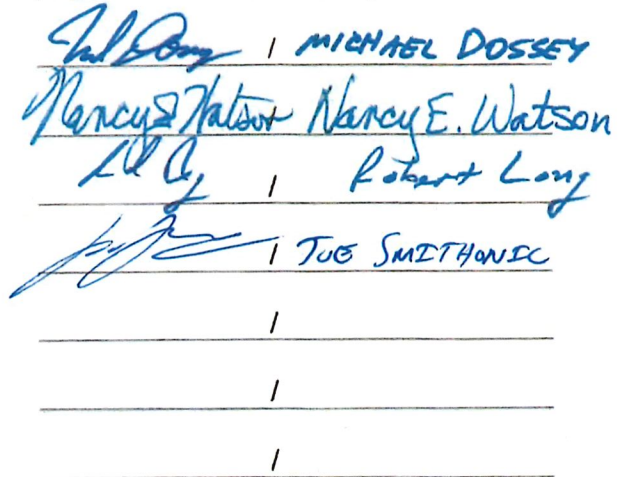 / MICHAEL DOSSEY
Nancy E Watson / Nancy E. Watson
/ Robert Long
/ JOE SMITHONIC
/
/
/